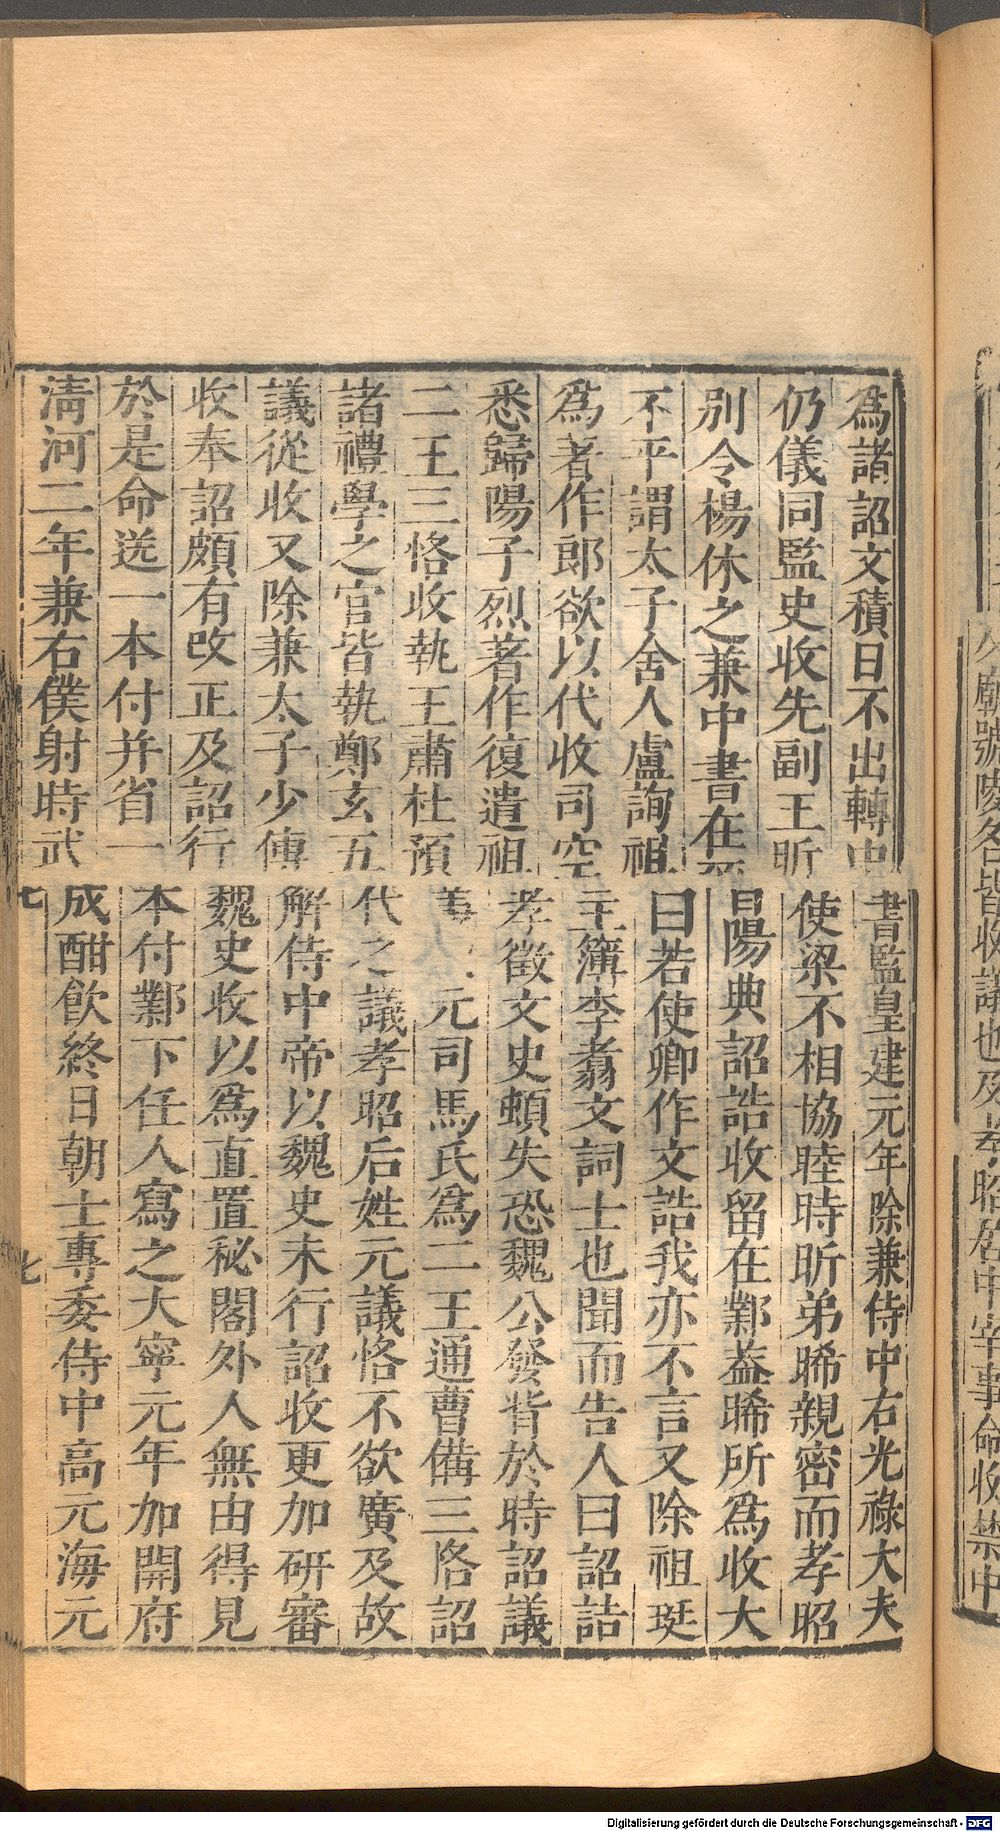 爲諸詔文積日不出轉中書監皇建元年除兼侍中右光祿大夫
仍儀同監史收先副王昕使梁不相協睦時昕弟晞親密而孝昭
別令楊休之兼中書在晉陽典詔誥收留在鄴蓋晞所爲收大
不平謂太子舍人盧詢祖曰若使卿作文誥我亦不言又除祖珽
爲著作郎欲以代收司空主簿李翥文詞士也聞而告人曰詔誥
悉歸陽子烈著作復遣祖孝徵文史頓失恐魏公發背於時詔議
二王三恪收執王肅杜預義元司馬氏爲二王通曹備三恪詔
諸禮學之官皆執鄭玄五代之議孝昭后姓元議恪不欲廣及故
議從收又除兼太子少傅解侍中帝以魏史未行詔收更加研審
收奉詔頗有改正及詔行魏史收以爲直置秘閣外人無由得見
於是命送一本付并省一本付鄴下任人寫之大寧元年加開府
淸河二年兼右僕射時武成酣飲終日朝士專委侍中高元海元
七
廟號陵名皆收議也及孝昭居中宰事命收禁中
Digitalisierung gefördert durch die Deutsche Forschungsgemeinschaft - DFG